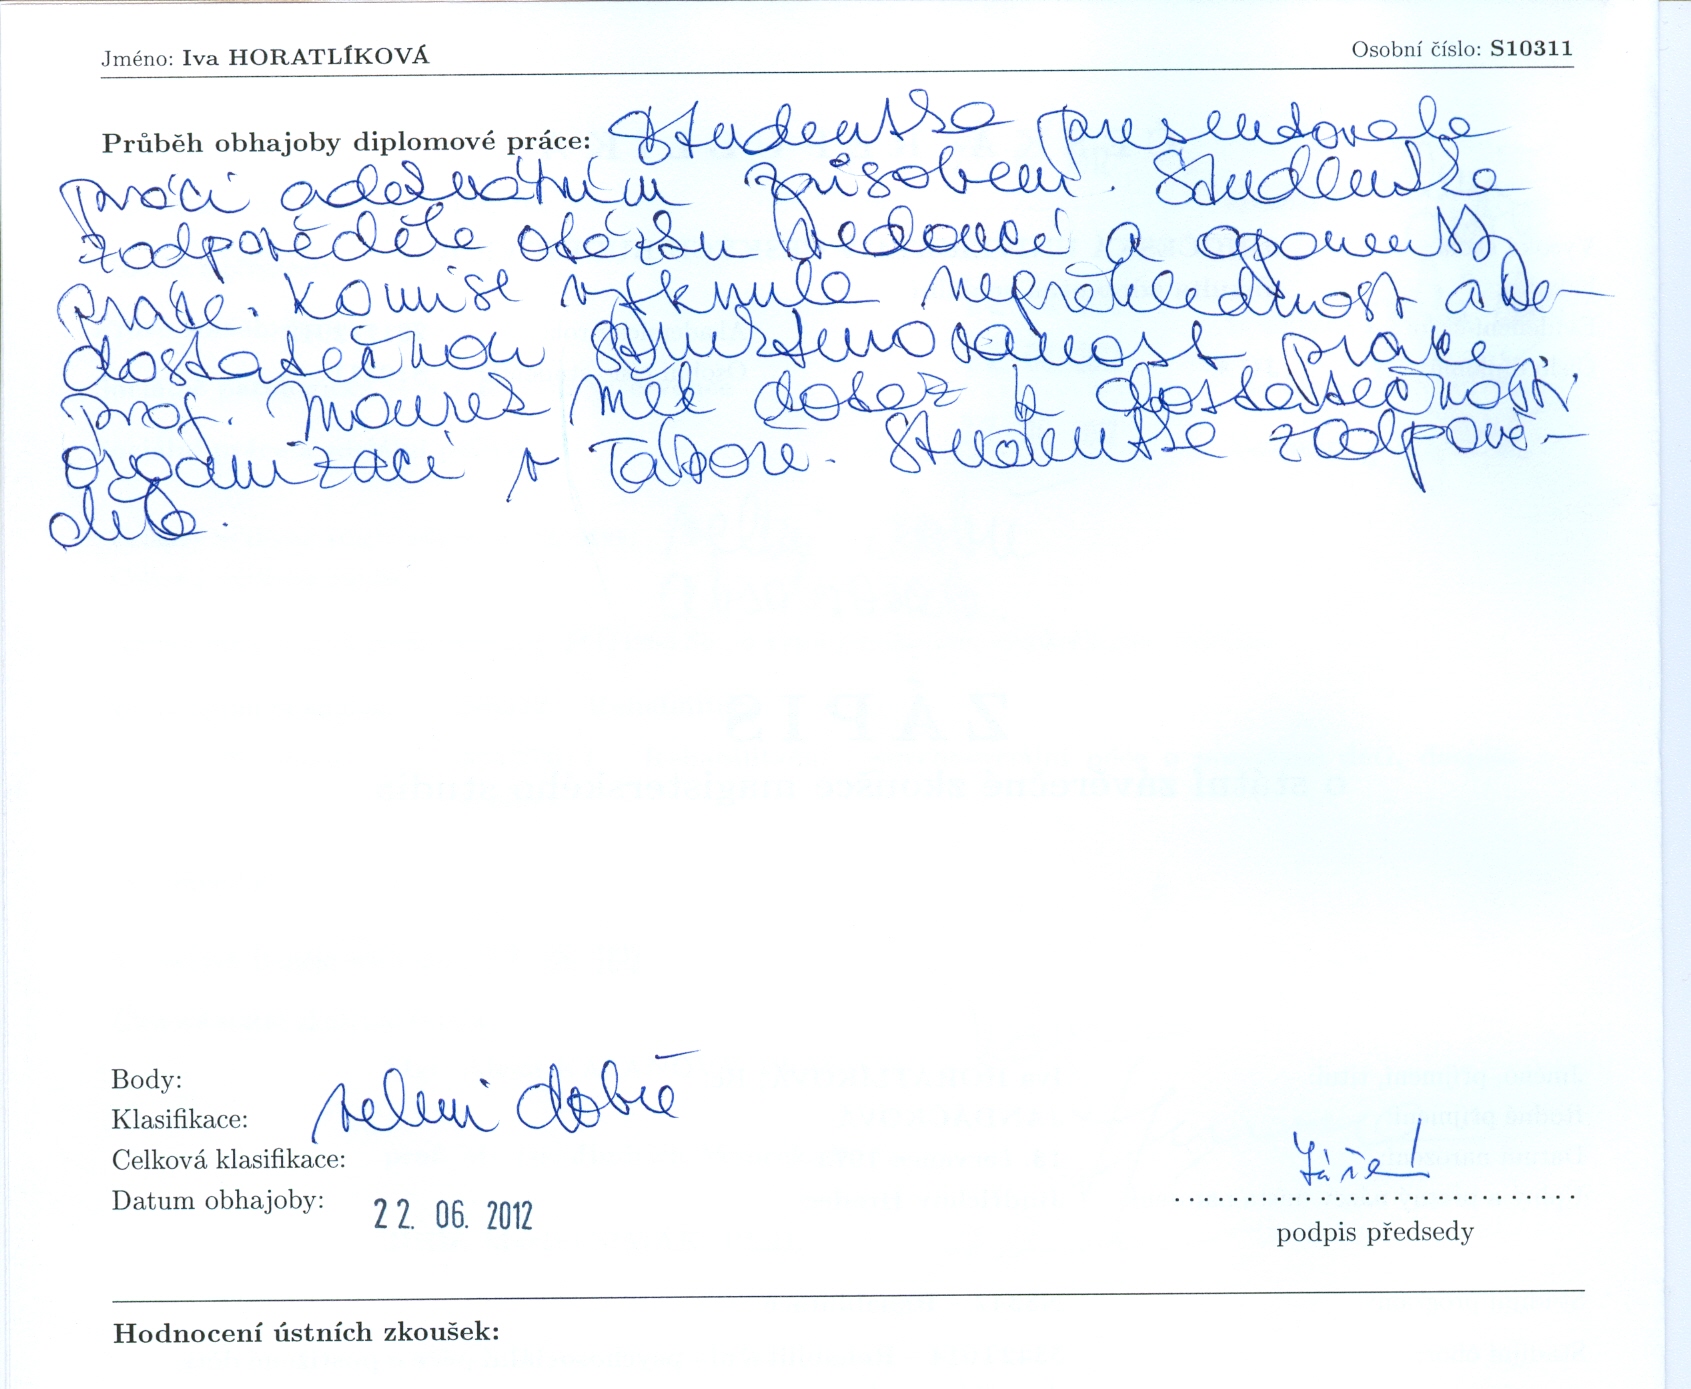 Jméno: Iva HORATLÍKOVÁ Osobní číslo: S10311
Průběh obhajoby diplomové práce: Studentka presentovala
práci adekvátním způsobem. Studentka
zodpověděla otázku vedoucí a oponenta
práce. Komise vytknula nepřehlednost a ne-
dostatečnou strukturovanost práce.
Prof. Moureš měl dotaz k dostatečnosti
organizací v Táboře. Studentka zodpově-
děla.
Body:
Klasifikace: velmi dobře
Celková klasifikace:
Datum obhajoby: 22. 06. 2012
podpis předsedy
Hodnocení ústních zkoušek: